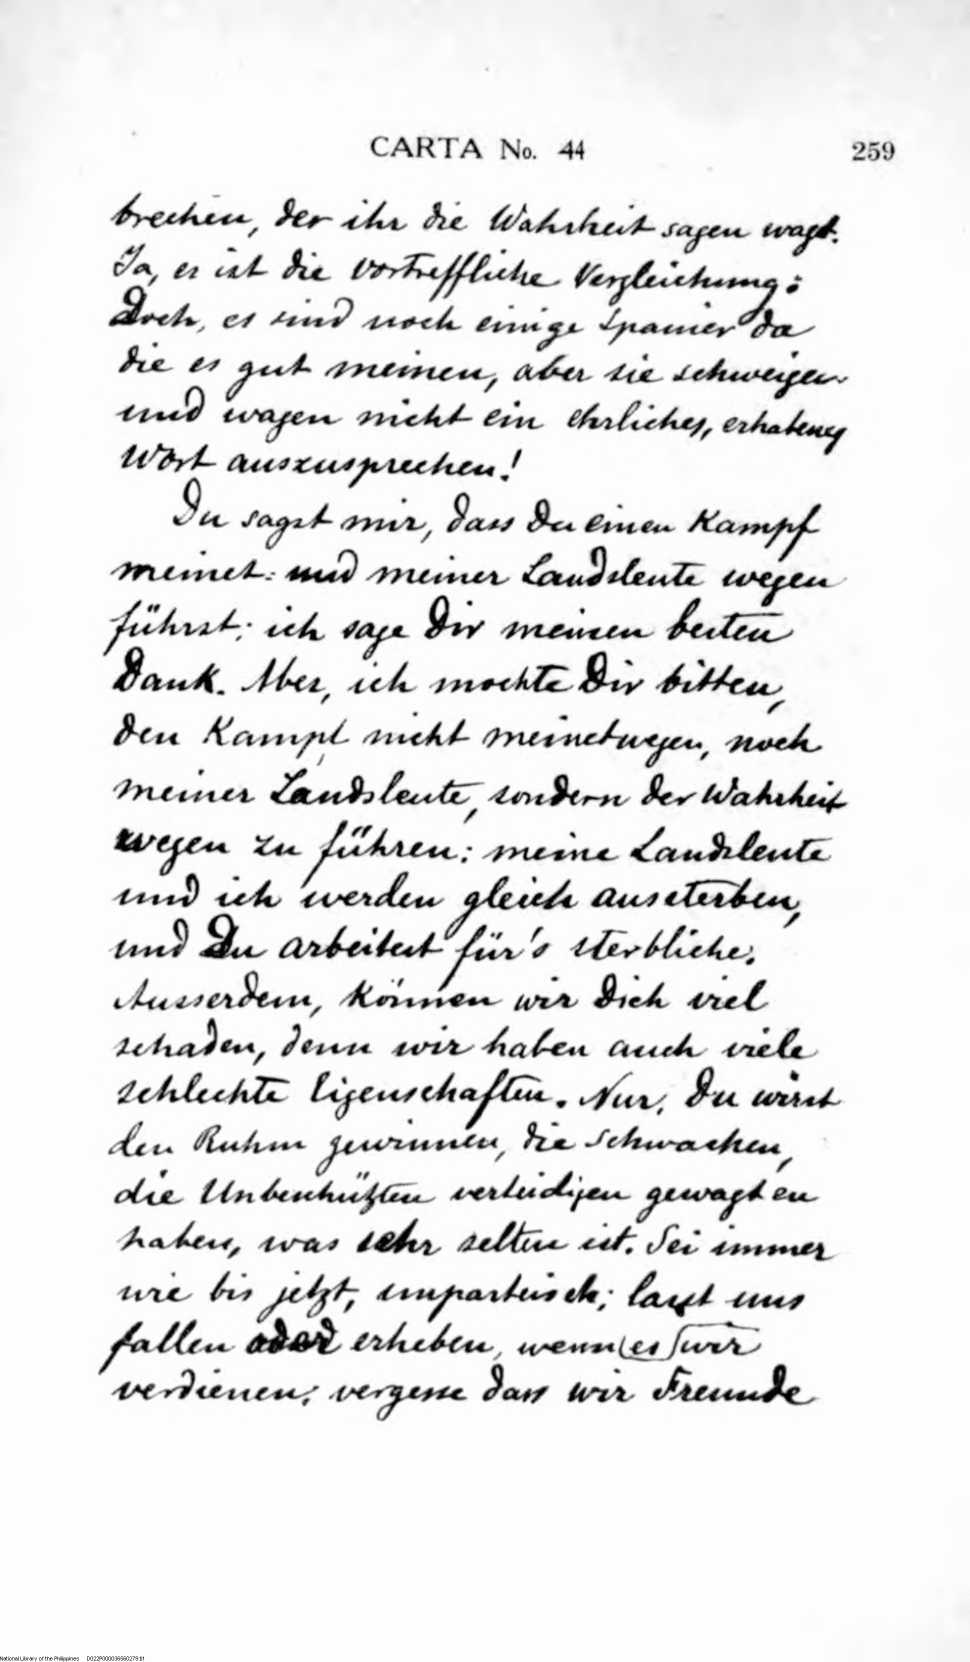 CARTA No. 44
259
brechen, der ihr die Wahrheit sagen wagt.
Ja, es ist die vortreffliche Vergleichung:
Doch, es sind noch einige Spanier da
die es gut meinen, aber sie schweigen
und wagen nicht ein ehrliches, erhabenes
Wort auszusprechen!
Du sagst mir, dass Du einen Kampf
meinet: und meiner Landsleute wegen
führst; ich sage Dir meinen besten
Dank. Aber, ich mochte Dir bitten,
den Kampf nicht meinetwegen, noch
meiner Landsleute, sondern der Wahrheit
wegen zu führen: meine Landsleute
und ich werden gleich aussterben,
und Du arbeitest für's sterbliche.
Ausserdem, können wir Dich viel
schaden, denn wir haben auch viele
schlechte Eigenschaften. Nur, Du wirst
den Ruhm gewinnen, die Schwachen,
die Unbeschützten verteidigen gewagt en
haben, was sehr selten ist. Sei immer
wie bis jetzt, unparteiisch; lasst uns
fallen oder erheben, wenn (es) wir
verdienen; vergesse dass wir Freunde
National Library of the Philippines